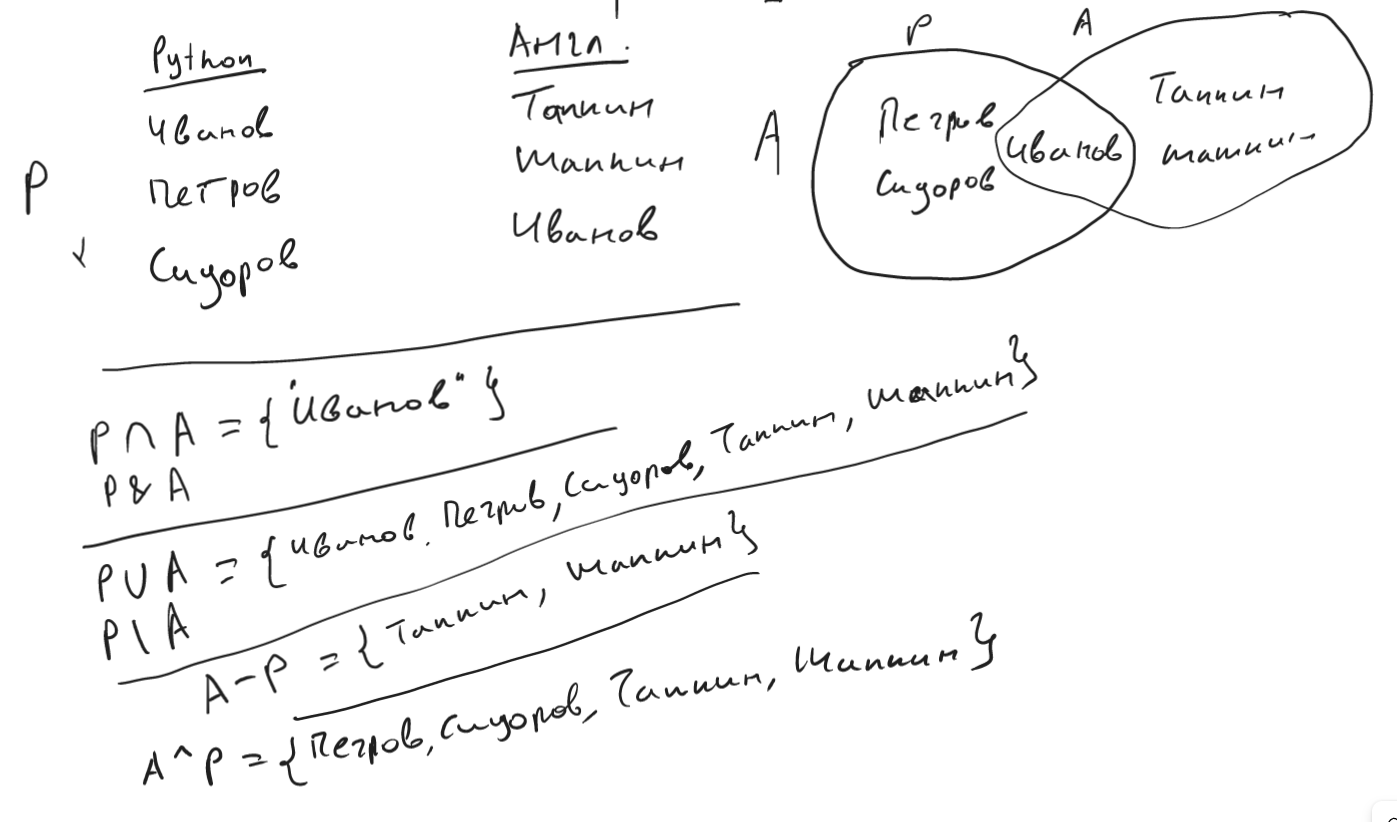 Python
Иванов
Петров
Сидоров
P
Англ.
Таппин
Шаппин
Иванов
A
P
A
Петров
Сидоров
Иванов
Таппин
P ∩ A = {"Иванов"}
P & A
P ∪ A = {Иванов, Петров, Сидоров, Таппин, Шаппин}
P | A
A - P = {Таппин, Шаппин}
A ^ P = {Петров, Сидоров, Таппин, Шаппин}